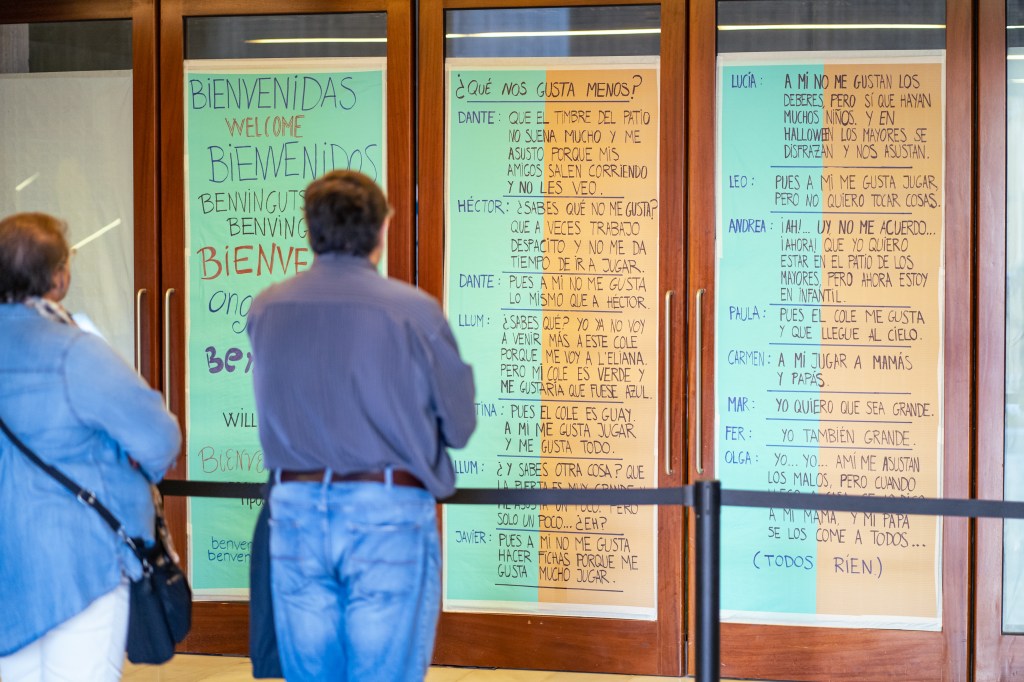 BIENVENIDAS
WELCOME
BIENVENIDOS
BENVINGUTS
BENVING
BIENVE
ONG
WILL
BIENVE
benven
benven
¿QUÉ NOS GUSTA MENOS?
DANTE: QUE EL TIMBRE DEL PATIO
NO SUENA MUCHO Y ME
ASUSTO PORQUE MIS
AMIGOS SALEN CORRIENDO
Y NO LES VEO.
HÉCTOR: ¿SABES QUÉ NO ME GUSTA?
QUE A VECES TRABAJO
DESPACITO Y NO ME DA
TIEMPO DE IR A JUGAR.
DANTE: PUES A MÍ NO ME GUSTA
LO MISMO QUE A HÉCTOR.
LLUM: ¿SABES QUÉ? YO YA NO VOY
A VENIR MÁS A ESTE COLE
PORQUE ME VOY A L'ELIANA.
PERO MI COLE ES VERDE Y
ME GUSTARÍA QUE FUESE AZUL.
TINA: PUES EL COLE ES GUAY.
A MÍ ME GUSTA JUGAR
Y ME GUSTA TODO.
LLUM: ¿Y SABES OTRA COSA? QUE
LA PUERTA ES MUY GRANDE
ME ASUSTA UN POCO. PERO
SOLO UN POCO... ¿EH?
JAVIER: PUES A MÍ NO ME GUSTA
HACER FICHAS PORQUE ME
GUSTA MUCHO JUGAR.
LUCÍA: A MÍ NO ME GUSTAN LOS
DEBERES, PERO SÍ QUE HAYAN
MUCHOS NIÑOS. Y EN
HALLOWEEN LOS MAYORES SE
DISFRAZAN Y NOS ASUSTAN.
LEO: PUES A MÍ ME GUSTA JUGAR,
PERO NO QUIERO TOCAR COSAS.
ANDREA: ¡AH!... UY NO ME ACUERDO...
¡AHORA! QUE YO QUIERO
ESTAR EN EL PATIO DE LOS
MAYORES, PERO AHORA ESTOY
EN INFANTIL.
PAULA: PUES EL COLE ME GUSTA
Y QUE LLEGUE AL CIELO.
CARMEN: A MÍ JUGAR A MAMÁS
Y PAPÁS.
MAR: YO QUIERO QUE SEA GRANDE.
FER: YO TAMBIÉN GRANDE.
OLGA: YO... YO... A MÍ ME ASUSTAN
LOS MALOS, PERO CUANDO
A MI MAMÁ, Y MI PAPÁ
SE LOS COME A TODOS...
(TODOS RÍEN)